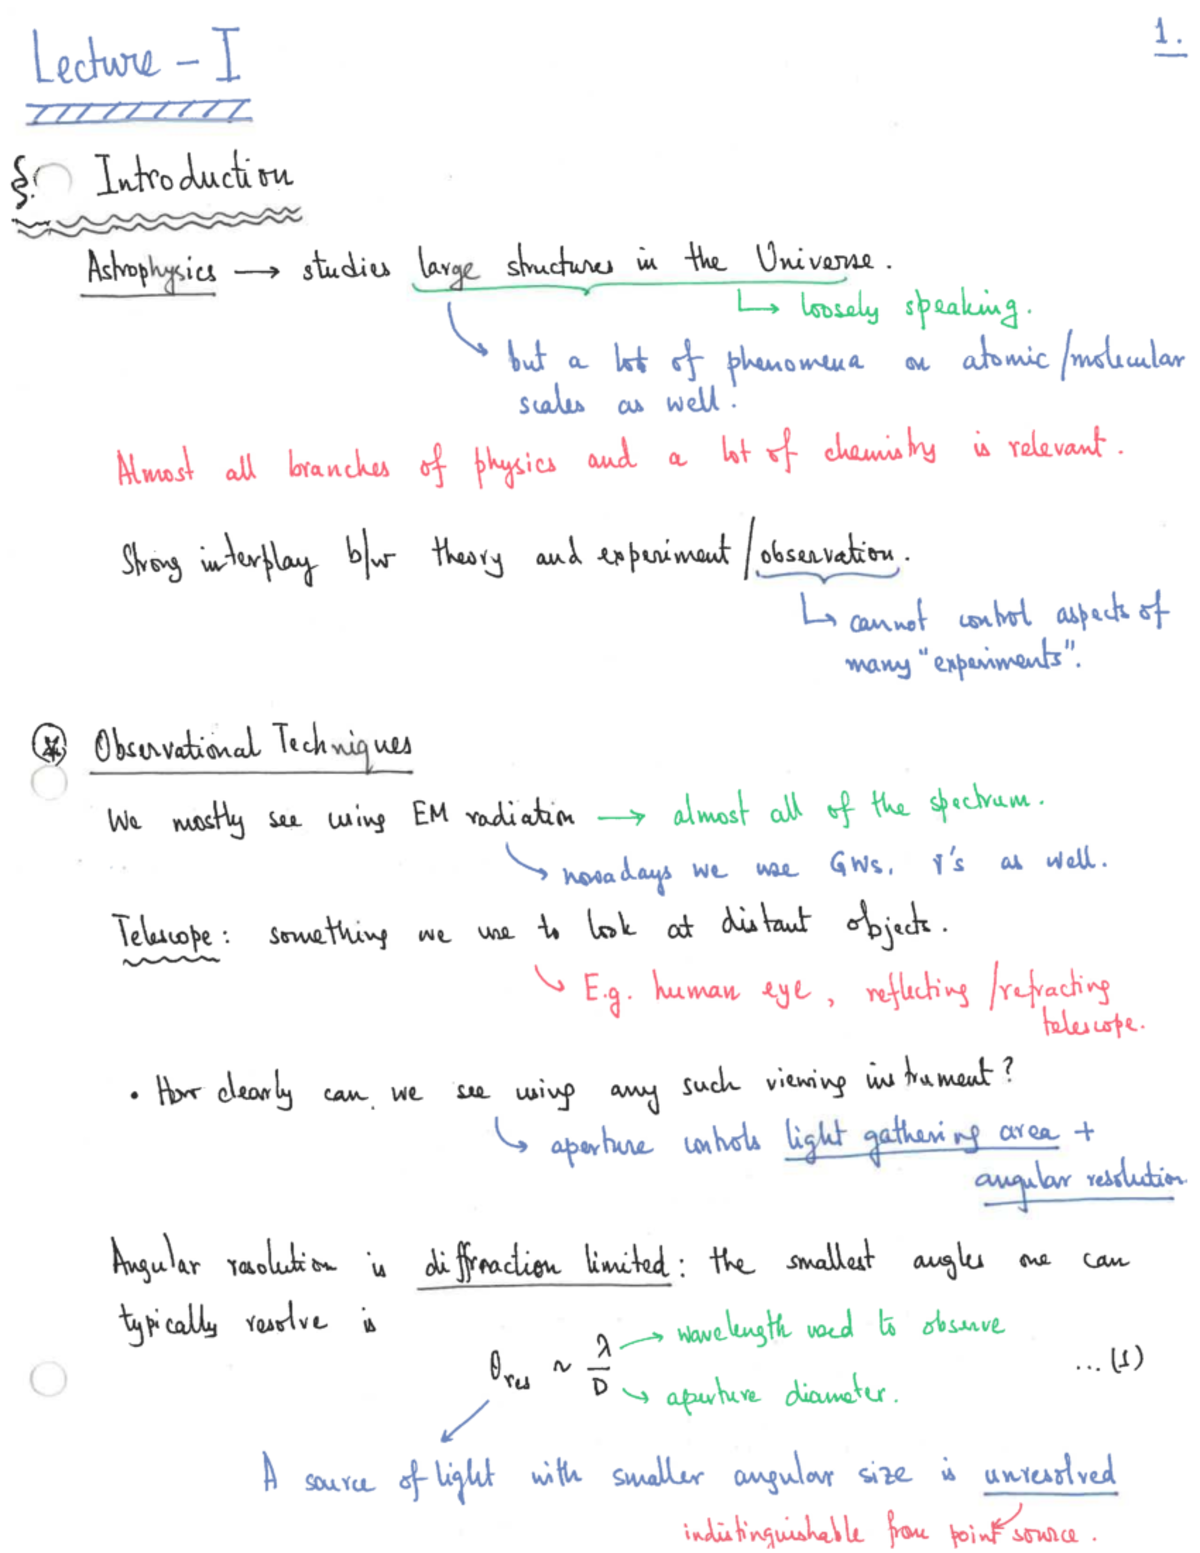 Lecture - I
1.
§. Introduction
Astrophysics → studies large structures in the Universe.
↳ loosely speaking.
but a lot of phenomena on atomic/molecular
scales as well.
Almost all branches of physics and a lot of chemistry is relevant.
Strong interplay b/w theory and experiment/observation.
↳ cannot control aspects of
many "experiments".
⊛ Observational Techniques
We mostly see using EM radiation → almost all of the spectrum.
nowadays we use GWs, γ's as well.
Telescope: something we use to look at distant objects.
E.g. human eye, reflecting/refracting
telescope.
• How clearly can we see using any such viewing instrument?
↳ aperture controls light gathering area +
angular resolution.
Angular resolution is diffraction limited: the smallest angles one can
typically resolve is
→ wavelength used to observe
θres ~ λ/D ... (1)
→ aperture diameter.
A source of light with smaller angular size is unresolved
indistinguishable from point source.